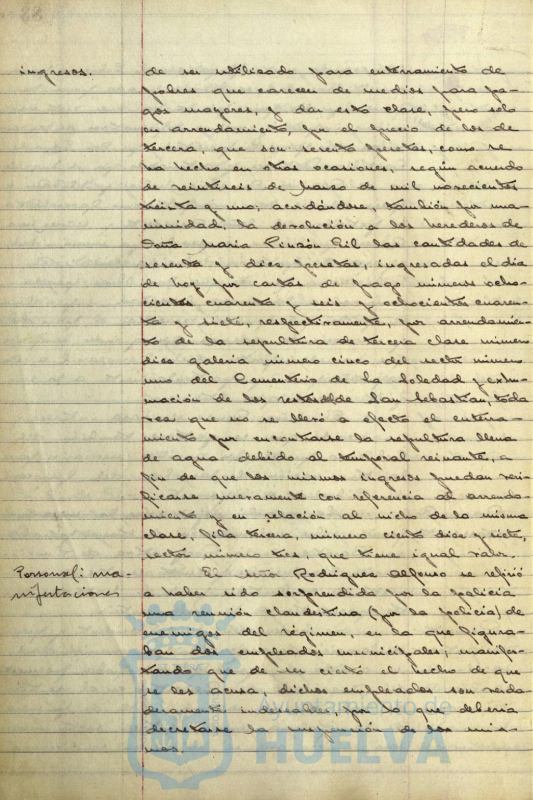 ingresos.
de ser utilizado para enterramiento de
pobres que carecen de medios para pa-
gos mayores, y dar esta clase, pero solo
en arrendamiento, por el precio de los de
tercera, que son sesenta pesetas, como se
ha hecho en otras ocasiones, según acuerdo
de veintiseis de Marzo de mil novecientos
treinta y uno; acordándose, también por una-
nimidad, la devolución a los herederos de
Doña María Pinzón Gil las cantidades de
sesenta y diez pesetas, ingresadas el día
de hoy por cartas de pago números ocho-
cientos cuarenta y seis y ochocientos cuaren-
ta y siete, respectivamente, por arrendamien-
to de la sepultura de tercera clase número
diez galería número cinco del sector número
uno del Cementerio de la Soledad y exhu-
mación de los restos del de San Sebastian, toda
vez que no se llevó a efecto el enterra-
miento por encontrarse la sepultura llena
de agua debido al temporal reinante, a
fin de que los mismos ingresos puedan veri-
ficarse nuevamente con referencia al arrenda-
miento y en relación al nicho de la misma
clase, fila tercera, número ciento diez y siete,
sector número tres, que tiene igual valor.
Personal: ma-
nifestaciones
El señor Rodríguez Alfonso se refirió
a haber sido sorprendida por la policía
una reunión clandestina (por la policía) de
enemigos del régimen, en la que figura-
ban dos empleados municipales, manifes-
tando que de ser cierto el hecho de que
se les acusa, dichos empleados son verda-
deramente indeseables, por lo que debería
decretarse la suspensión de los mis-
mos.
Ayuntamiento de
HUELVA